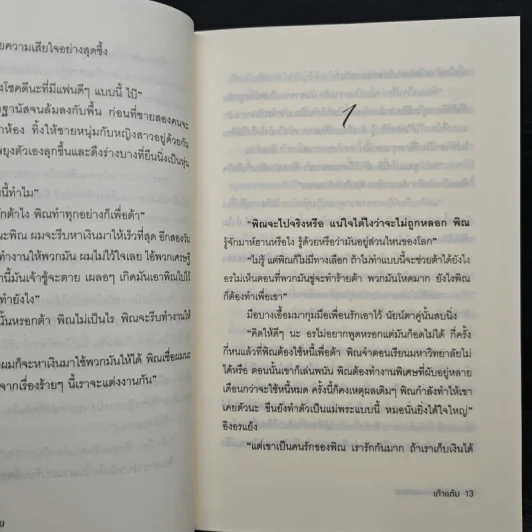 ยความเสียใจอย่างสุดซึ้ง
งโชคดีนะที่มีแฟนดีๆ แบบนี้ ไป๊”
ฐานัสจนล้มลงกับพื้น ก่อนที่ชายสองคนจะ
าห้อง ทิ้งให้ชายหนุ่มกับหญิงสาวอยู่ด้วยกัน
พยุงตัวเองลุกขึ้นและดึงร่างบางที่ยืนนิ่งเป็นหุ่น
งนี้ทำไม”
รักต้าไง พิณทำทุกอย่างก็เพื่อต้า”
นะพิณ ผมจะรีบหาเงินมาให้เร็วที่สุด อีกสองวัน
ทำงานให้พวกมัน ผมไม่ไว้ใจเลย ไอ้พวกเศรษฐี
านี้มันเจ้าชู้จะตาย เผลอๆ เกิดมันเอาพิณไปไ
ทำยังไง”
นั้นหรอกต้า พิณไม่เป็นไร พิณจะรีบทำงานให้
ผมก็จะหาเงินมาใช้พวกมันให้ได้ พิณเชื่อผมนะ
จากเรื่องร้ายๆ นี้เราจะแต่งงานกัน”
ย
1
“พิณจะไปจริงหรือ แน่ใจได้ไงว่าจะไม่ถูกหลอก พิณ
รู้จักมาห์ฮานหรือไง รู้ด้วยหรือว่ามันอยู่ส่วนไหนของโลก”
“ไม่รู้ แต่พิณก็ไม่มีทางเลือก ถ้าไม่ทำแบบนี้จะช่วยต้าได้ยังไง
อรไม่เห็นตอนที่พวกมันขู่จะทำร้ายต้า พวกมันโหดมาก ยังไงพิณ
ก็ต้องทำเพื่อเขา”
มือบางเอื้อมมากุมมือเพื่อนรักเอาไว้ นัยน์ตาคู่นั้นสงบนิ่ง
“คิดให้ดีๆ นะ อรไม่อยากพูดหรอกแต่มันก็อดไม่ได้ กี่ครั้ง
กี่หนแล้วที่พิณต้องใช้หนี้เพื่อต้า พิณจำตอนเรียนมหาวิทยาลัยไม่
ได้หรือ ตอนนั้นเขาก็เล่นพนัน พิณต้องทำงานพิเศษที่ผับอยู่หลาย
เดือนกว่าจะใช้หนี้หมด ครั้งนี้ก็คงเหตุผลเดิมๆ พิณกำลังทำให้เขา
เคยตัวนะ ขืนยังทำตัวเป็นแม่พระแบบนี้ หมอนั่นยิ่งได้ใจใหญ่”
อิงอรแย้ง
“แต่เขาเป็นคนรักของพิณ เรารักกันมาก ถ้าเราเก็บเงินได้
เก้าแต้ม 13